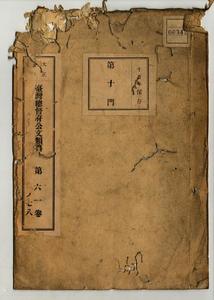 大正
臺灣總督府公文類纂
第六一卷
ノ七八
第十門